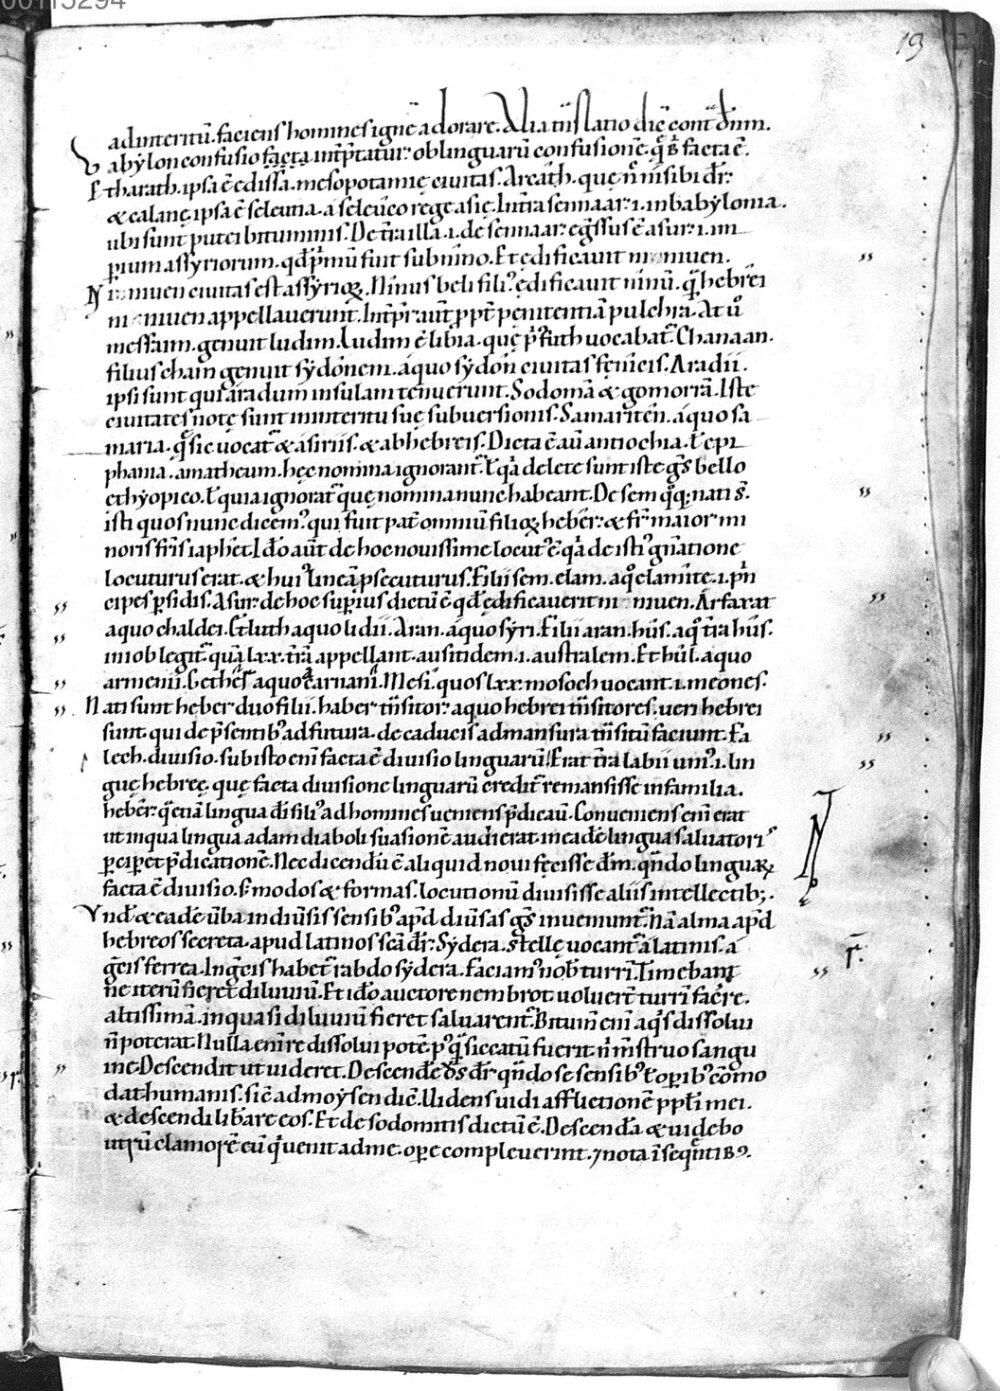 00115294
19
ad interitū. faciens homines ignē adorare. Alia trāslatio dic̄ cont̄ dn̄m.
Babylon confusio facta int̄p̄tatur. ob linguarū confusionē. q̄ ibi facta ē.
Et harath. ipsa ē edissa. mesopotamię civitas. Arcath. quę n̄ nisibi dr̄.
& calanę ipsa ē seleucia. a seleuco rege asię. In t̄ra sennaar. i. in babylonia.
ubi sunt putei bituminis. De t̄ra illa. i. de sennaar. egressus ē asur. i. im
perium assyriorum. qd̄ primū fuit sub nino. Et ędificavit niniven.
Niniven civitas est assyrioꝝ. Ninus beli filiꝰ ędificavit ninū. quā hebrei
niniven appellaverunt. Int̄p̄raūt pp̄t penitentiā pulchra. At ū
mesraim. genuit ludim. Ludim ē libia. quę pͥ futh vocabat̄. Chanaan.
filius cham genuit sydonem. a quo sydon civitas fęnicis. Aradii.
ipsi sunt qui aradum insulam tenuerunt. Sodomā & gomorrā. Iste
civitates notę sunt in interitu suę subversionis. Samaritēn. a quo sa
maria. quę sic vocat̄ & a siriis. & ab hebreis. Dicta ē aū antiochia. ł epi
phania. amatheum. hęc nomina ignorant̄. ł qa deletę sunt istę gentes bello
ethyopico. ł quia ignorat̄ quę nomina nunc habeant. De sem q̊q; nati s̄.
isti quos nunc dicemꝰ. qui fuit pat̄ omniū filioꝝ heber. & fr̄ maior mi
noris fr̄is iaphet. Ido aut̄ de hoc novissime locutꝰ ē qa de istiꝰ gn̄atione
locuturus erat. & huiꝰ lineā psecuturus. Filii sem. elam. a quo elamitę. i. prin
cipes persidis. Asur. de hoc superius dictū ē qd̄ ędificaverit niniven. Arfaxat
a quo chaldei. Et luth a quo lidii. Aran. a quo syri. Filii aran. hus. a quo t̄ra hus.
in iob legit̄ quā lxx. t̄rā appellant. ausitidem. i. australem. Et hul. a quo
armenii. Gether a quo carnanii. Mes. quos lxx. mosoch vocant. i. meones.
Nati sunt heber duo filii. haber trāsitor. a quo hebrei trāsitores. veri hebrei
sunt. qui de p̄sentibꝰ ad futura. de caducis ad mansura trāsitū faciunt. Fa
lech. divisio. sub isto enī facta ē divisio linguarū. Erat t̄ra labii uniꝰ. i. lin
guę hebręę. quę facta divisione linguarū credit̄ remansisse in familia.
heber. q̄ etiā lingua dī filiꝰ ad homines veniens p̄dicaū. Conveniens enī erat
ut in qua lingua adam diaboli suasionē audierat. in eadē lingua salvatoriꝰ
perciperet p̄dicationē. Nec dicendū ē aliquid novi fecisse dm̄. quando linguaꝝ
facta ē divisio. s; modos & formas. locutionū divisisse aliis intellectib;.
Und̄ & eadē verba in diversis sensibꝰ apd̄ diversas gentes inveniunt̄. Nā alma apd̄
hebreos secreta. apud latinos scā dr̄. Sydera. stellę vocant̄ a latinis. a
gręcis ferrea. In gręcis habet̄ rabdo sydera. Faciamꝰ nob̄ turrī. Timebant
ne iterū fieret diluviū. Et ido auctore nembrot voluert̄ turrī facere.
altissimā. in qua si diluviū fieret salvarent̄. Bitumen enī aquis dissolvi
n̄ poterat. Nulla enī re dissolvi potē. pꝰ quā siccatū fuerit n̄ mēstruo sangu
ine. Descendit ut videret. Descendere ds̄ dr̄ quando se sensibꝰ ł operibꝰ cōmo
dat humanis. sic̄ ad moysen dic̄. Videns vidi afflictionē ppłi mei.
& descendi liberare eos. Et de sodomitis dictū ē. Descendā & videbo
utrū clamorē eū q̇ venit ad me. opere compleverint. ⁊ nota in sequentibꝰ.